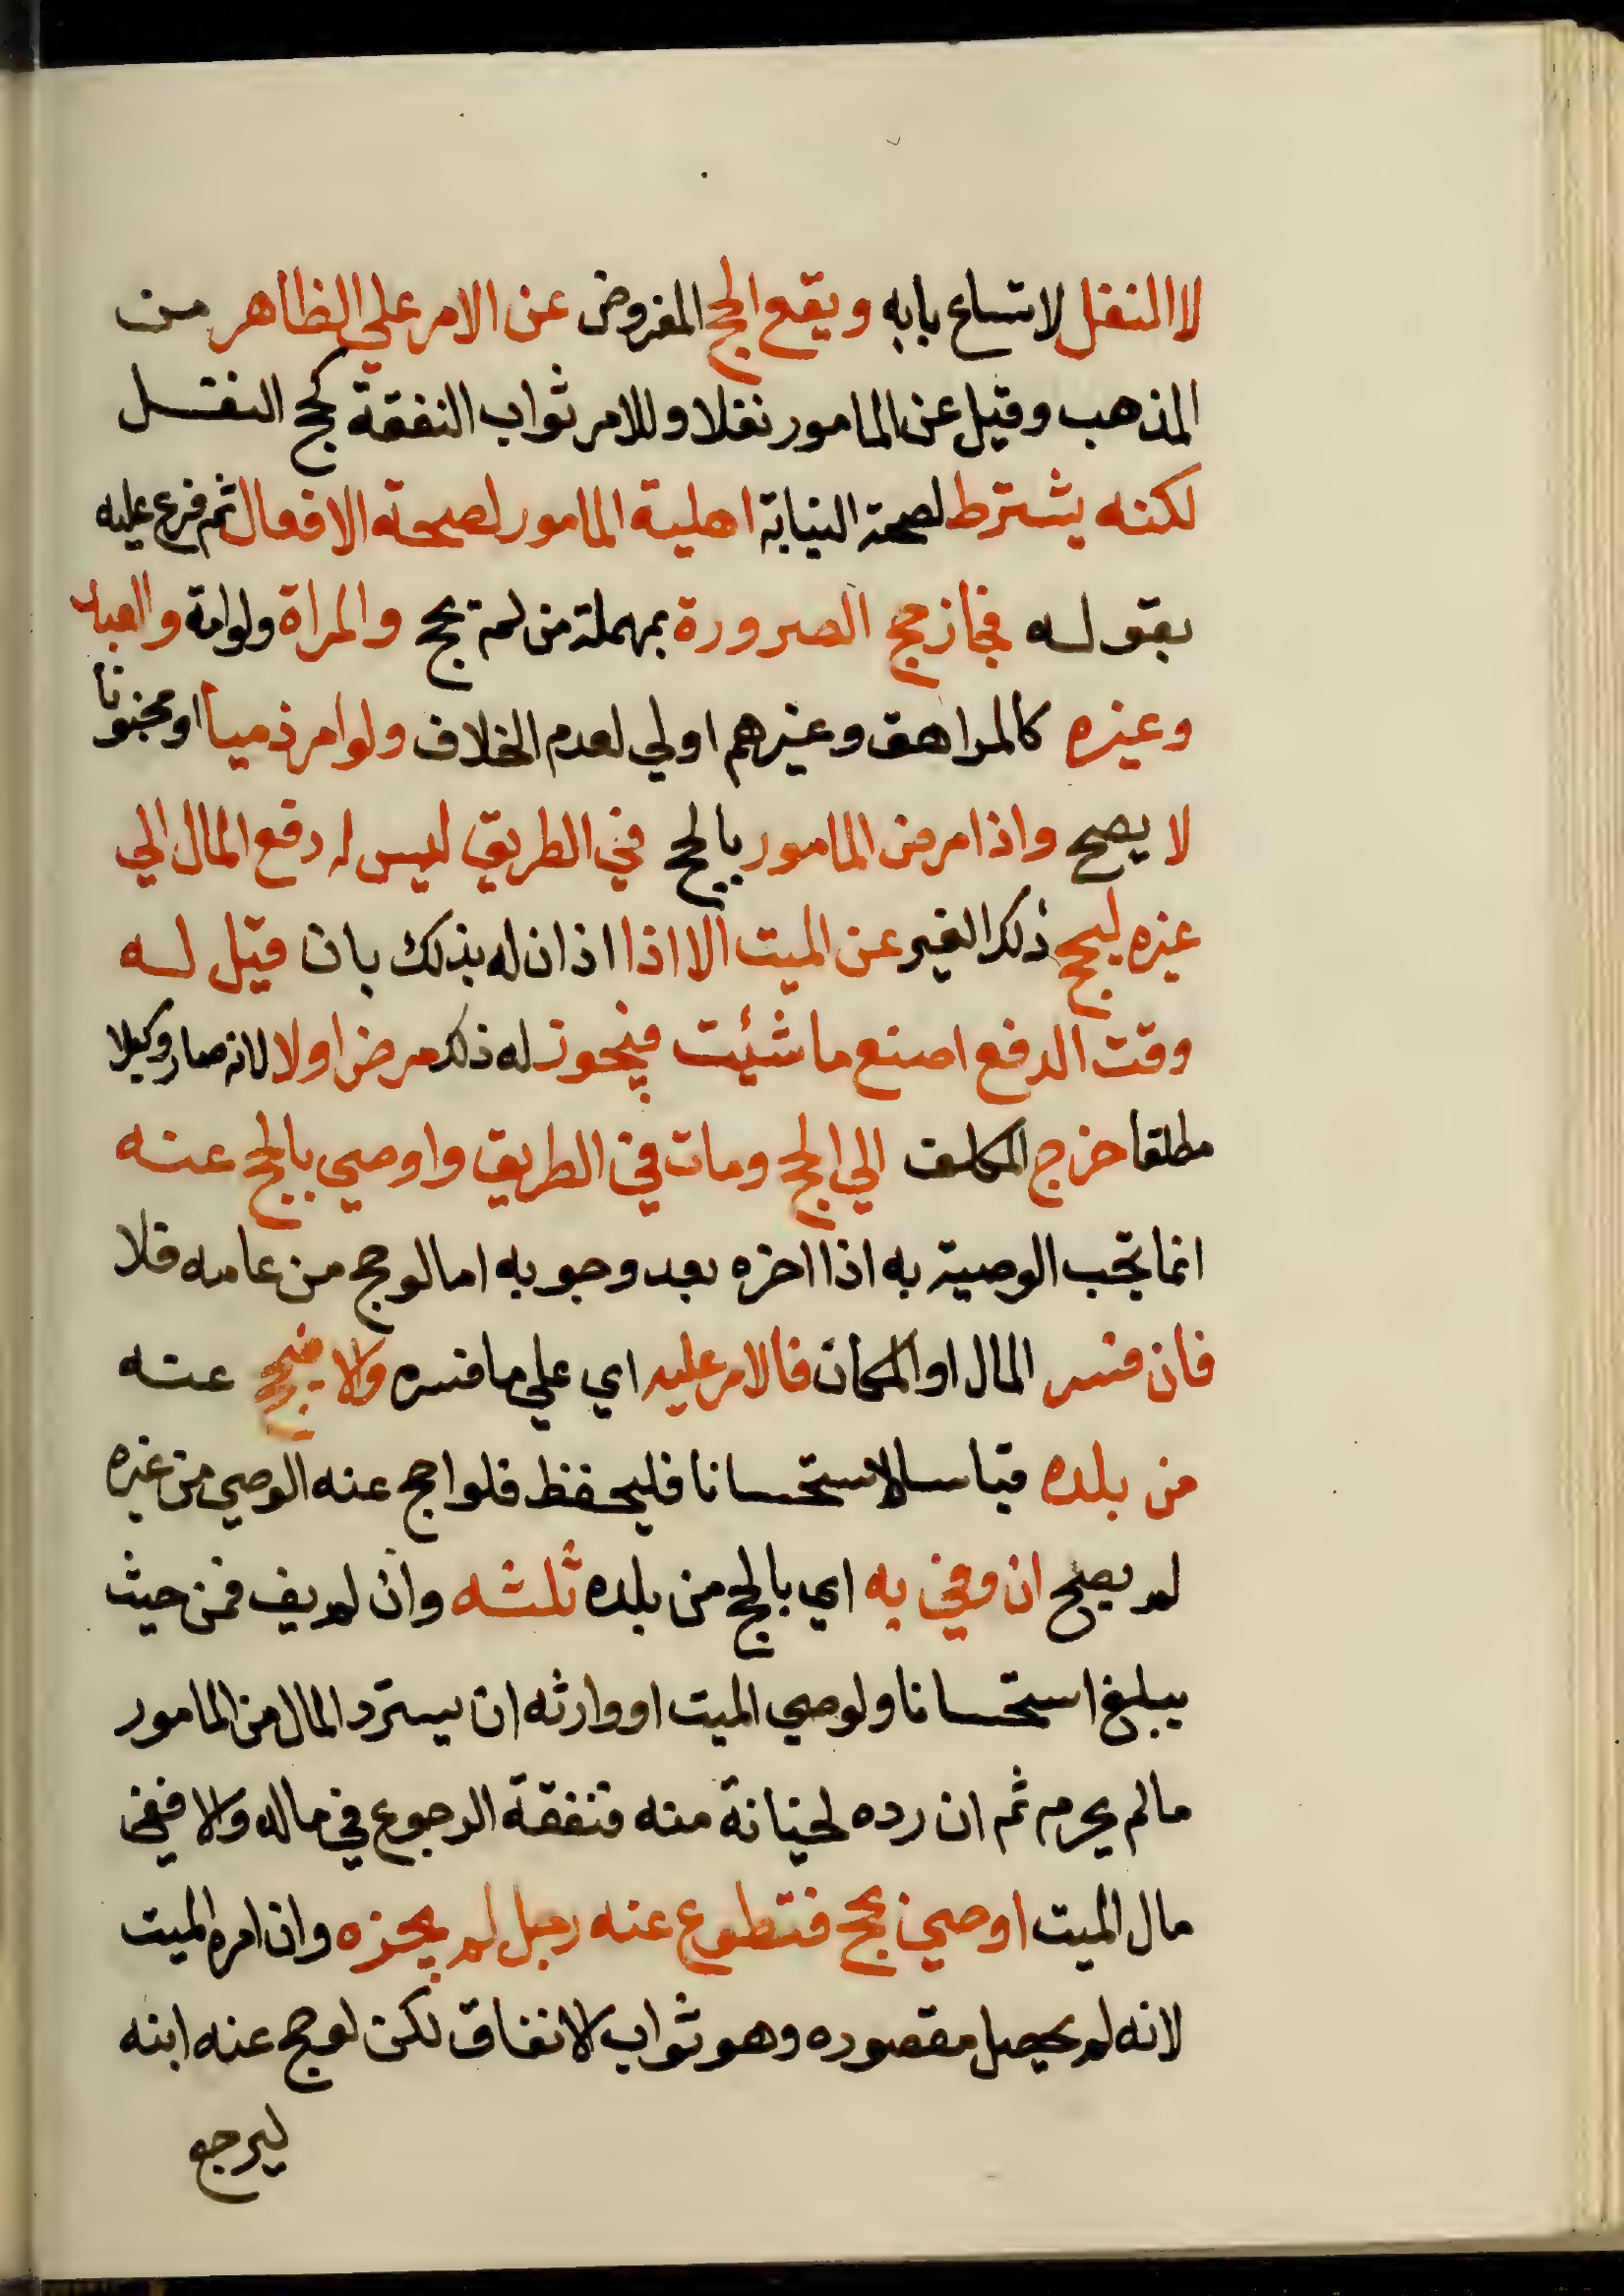 لا النفل لاتساع بابه ويقع الحج المفروض عن الامر علي الظاهر من
المذهب وقيل عن المامور نفلا وللامر ثواب النفقة كحج النفل
لكنه يشترط لصحة النيابة اهلية المامور لصحة الافعال ثم فرع عليه
بقوله فجاز حج الصرورة بمهملة من لم يحج والمراة ولو امة والعبد
وغيره كالمراهق وغيرهم اولي لعدم الخلاف ولو امر ذميا او مجنونا
لا يصح واذا مرض المامور بالحج في الطريق ليس له دفع المال الي
غيره ليحج ذلك الغير عن الميت الا اذا اذن له بذلك بان قيل له
وقت الدفع اصنع ما شئت فيجوز له ذلك مرض اولا لانه صار وكيلا
مطلقا خرج المكلف الي الحج ومات في الطريق واوصي بالحج عنه
انما تجب الوصية به اذا اخره بعد وجوبه اما لو حج من عامه فلا
فان فسر المال او المكان فالامر عليه اي علي ما فسره والا فيحج عنه
من بلده قياسا لا استحسانا فليحفظ فلو احج عنه الوصي من غيره
لم يصح ان وفي به اي بالحج من بلده ثلثه وان لم يف فمن حيث
يبلغ استحسانا ولوصي الميت او وارثه ان يسترد المال من المامور
مالم يحرم ثم ان رده لخيانة منه فنفقة الرجوع في ماله والا ففي
مال الميت اوصي بحج فتطوع عنه رجل لم يجزه وان امره الميت
لانه لم يحصل مقصوده وهو ثواب الانفاق لكن لو حج عنه ابنه
ليرجع